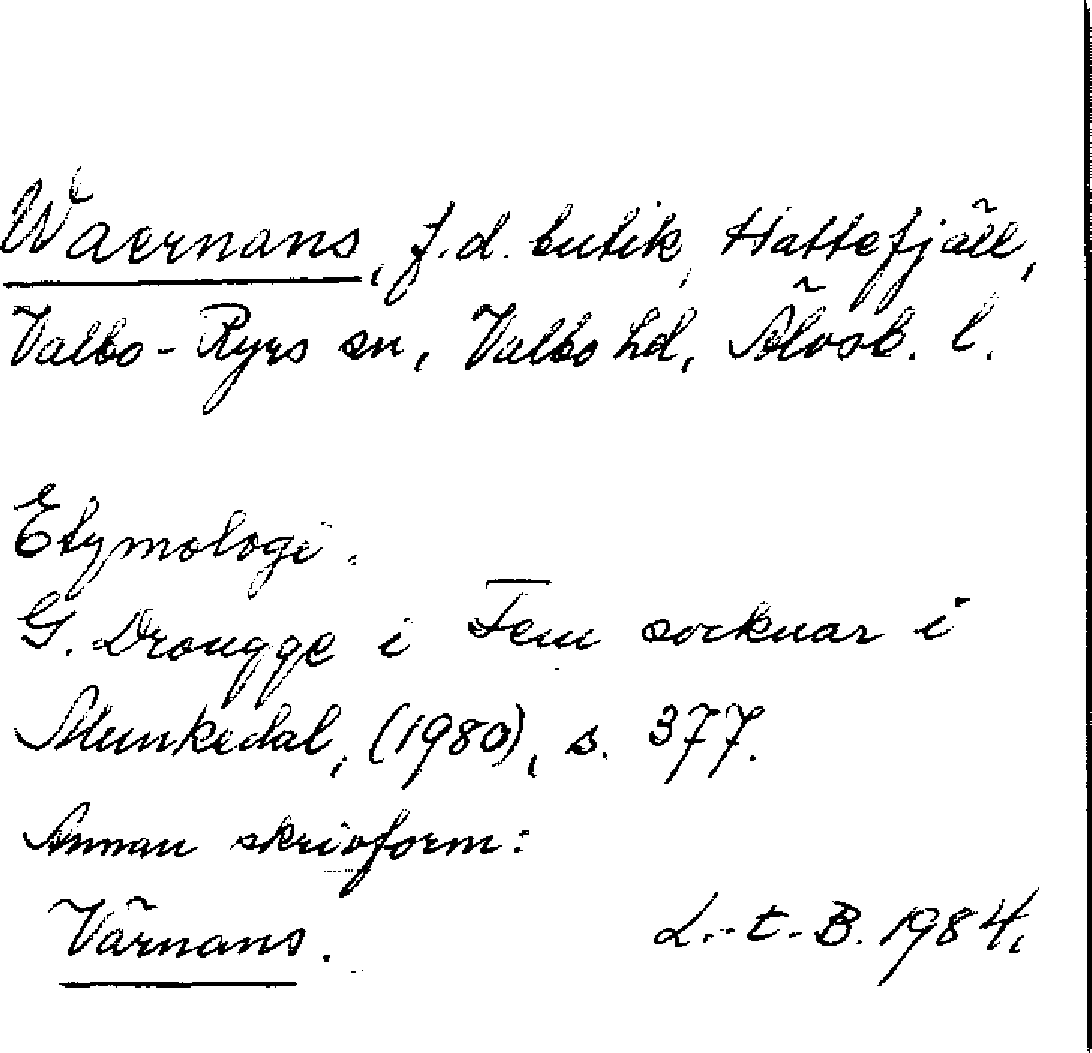 Waernans, f.d. butik, Hattefjäll,
Valbo-Ryrs sn, Valbo hd, Älvsb. l.
Etymologi.
G. Drougge i Fem socknar i
Munkedal, (1980), s. 377.
Annan skrivform:
Värnans. L.-t.-B. 1984.